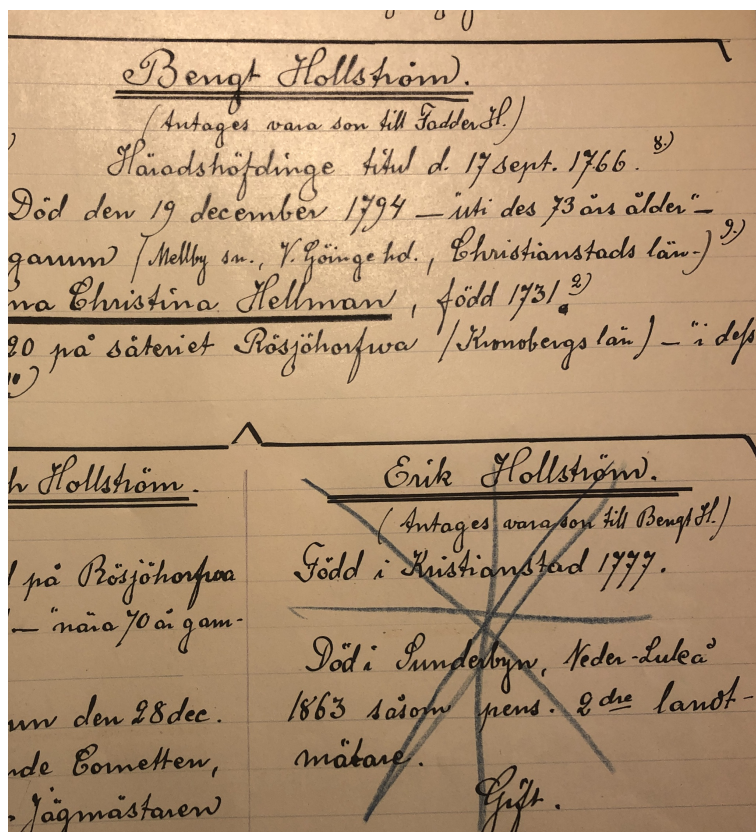 Bengt Hollström.
(Antages vara son till Fadder H.)
Häradshöfdinge titul d. 17 sept. 1766. 8.)
Död den 19 december 1794 — "uti des 73 års ålder" —
garum (Mellby sn., V. Göinge hd., Christianstads län.) 9.)
na Christina Hellman, född 1731. 2)
20 på säteriet Rösjöhorfwa (Kronobergs län) — "i dess
")
h Hollström.
på Rösjöhorfwa
— "nära 70 år gam-
un den 28 dec.
nde Cornetten,
Jägmästaren
Erik Hollström.
(Antages vara son till Bengt H.)
Född i Kristianstad 1777.
Död i Sunderbyn, Neder-Luleå
1863 såsom pens. 2dre landt-
mätare.
Gift.